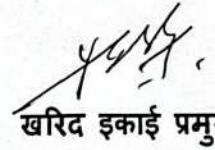 खरिद इकाई प्रमु